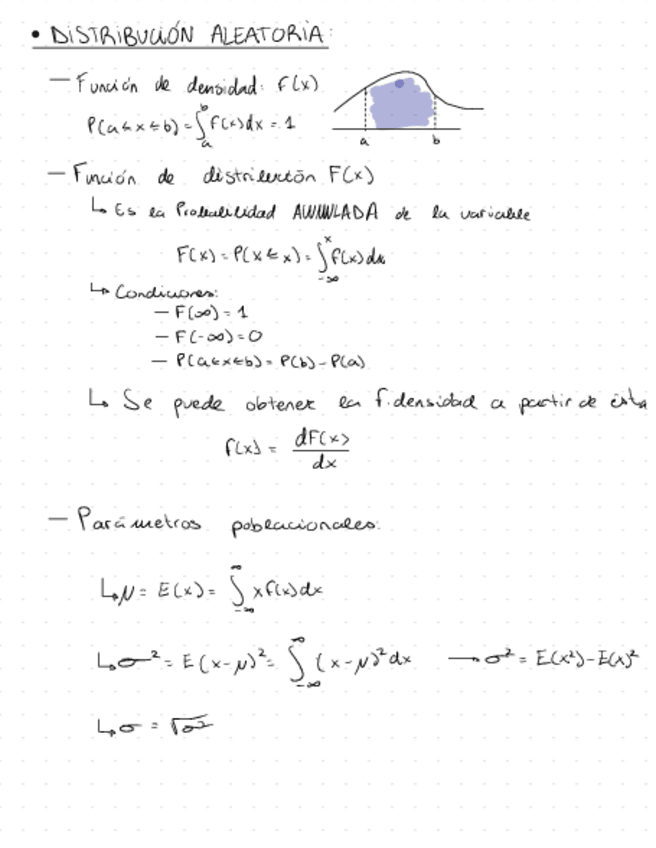 • DISTRIBUCIÓN ALEATORIA:
— Función de densidad: f(x)
P(a≤x≤b) = ∫_a^b f(x)dx = 1
a b
— Función de distribución F(x)
↳ Es la Probabilidad ACUMULADA de la variable
F(x) = P(X ≤ x) = ∫_{-∞}^x f(x)dx
↳ Condiciones:
— F(∞) = 1
— F(-∞) = 0
— P(a≤x≤b) = P(b) - P(a)
↳ Se puede obtener la f. densidad a partir de ésta
f(x) = dF(x)/dx
— Parámetros poblacionales:
↳ μ = E(x) = ∫_{-∞}^∞ x f(x)dx
↳ σ² = E(x-μ)² = ∫_{-∞}^∞ (x-μ)² dx → σ² = E(x²) - E(x)²
↳ σ = √σ²